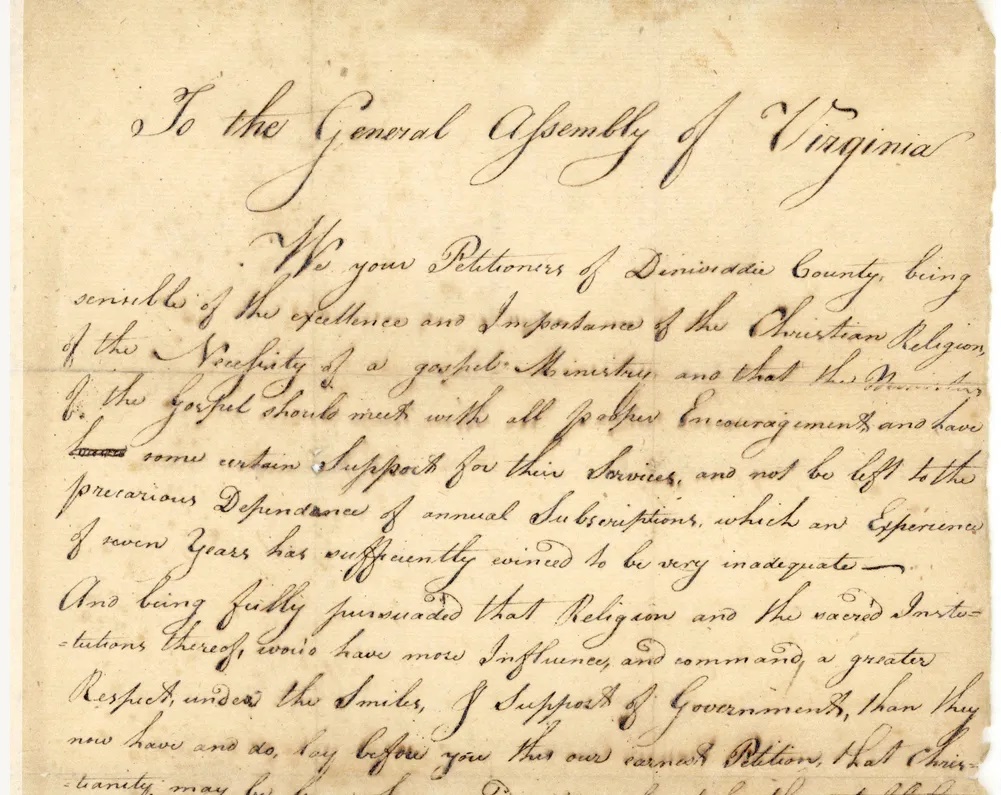 To the General Assembly of Virginia
We your Petitioners of Dinwiddie County, being
sensible of the excellence and Importance of the Christian Religion,
of the Necessity of a gospel-Ministry and that the Ministers
of the Gospel should meet with all proper Encouragement, and have
some certain Support for their Services, and not be left to the
precarious Dependance of annual Subscriptions, which an Experience
of seven Years has sufficiently evinced to be very inadequate—
And being fully pursuaded that Religion and the sacred Insti-
-tutions thereof, would have more Influence, and command, a greater
Respect, under the Smiles, & Support of Government, than they
now have and do, lay before you this our earnest Petition, that Chris-
-tianity, may be